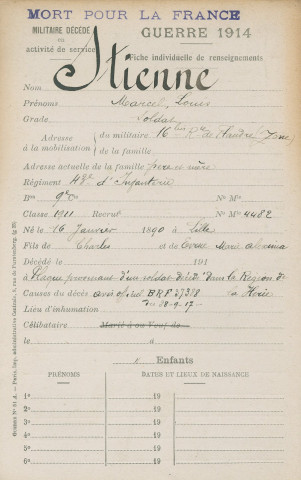 MORT POUR LA FRANCE
MILITAIRE DÉCÉDÉ
en
activité de service
GUERRE 1914
Fiche individuelle de renseignements
Nom Etienne
Prénoms Marcel, Louis
Grade Soldat
Adresse à la mobilisation { du militaire 16 Rue de Flandre
de la famille
Adresse actuelle de la famille père et mère
Régiment 43e d'Infanterie
Bon 9e Cie No Mle
Classe 1911 Recrut No Mle 4482
Né le 16 Janvier 1890 à Lille
Fils de Charles et de Marie
Décédé le 191
à Plaque provenant d'un soldat décédé dans la Région de
Causes du décès avis officiel BRF 27318 la
Lieu d'inhumation du 28-9-17
Célibataire Marié à ou Veuf de
le à
Enfants
PRÉNOMS DATES ET LIEUX DE NAISSANCE
1o 19
2o 19
3o 19
4o 19
5o 19
6o 19
Paris, Imp. administrative Centrale, 8, rue de Furstenberg.